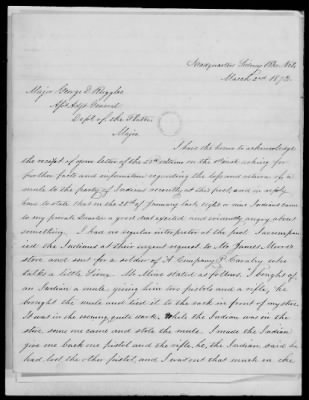 Headquarters Sidney Bks. Neb.
March 2nd 1873.
Major George D. Ruggles
Asst Adjt General
Dept of the Platte.
Major
I have the honor to acknowledge
the receipt of your letter of the on the asking for
further facts and information regarding the loss and return of a
mule to the party of Indians recently at this post, and in reply
have to state that on the 28th of January last, eight or nine Indians came
to my private Quarters a good deal excited and evidently angry about
something. I had no regular interpreter at the post. I accompan-
ied the Indians at their urgent request to Mr James Moore's
store and sent for a soldier of Company Cavalry who
talks a little Sioux. Mr Moore stated as follows. "I bought of
an Indian a mule, giving him two pistols and a rifle, he
brought the mule and tied it to the rack in front of my store.
It was in the evening, quite dark. While the Indian was in the
store some one came and stole the mule. I made the Indian
give me back one pistol and the rifle, he, the Indian, said he
had lost the other pistol, and I was out that much in the